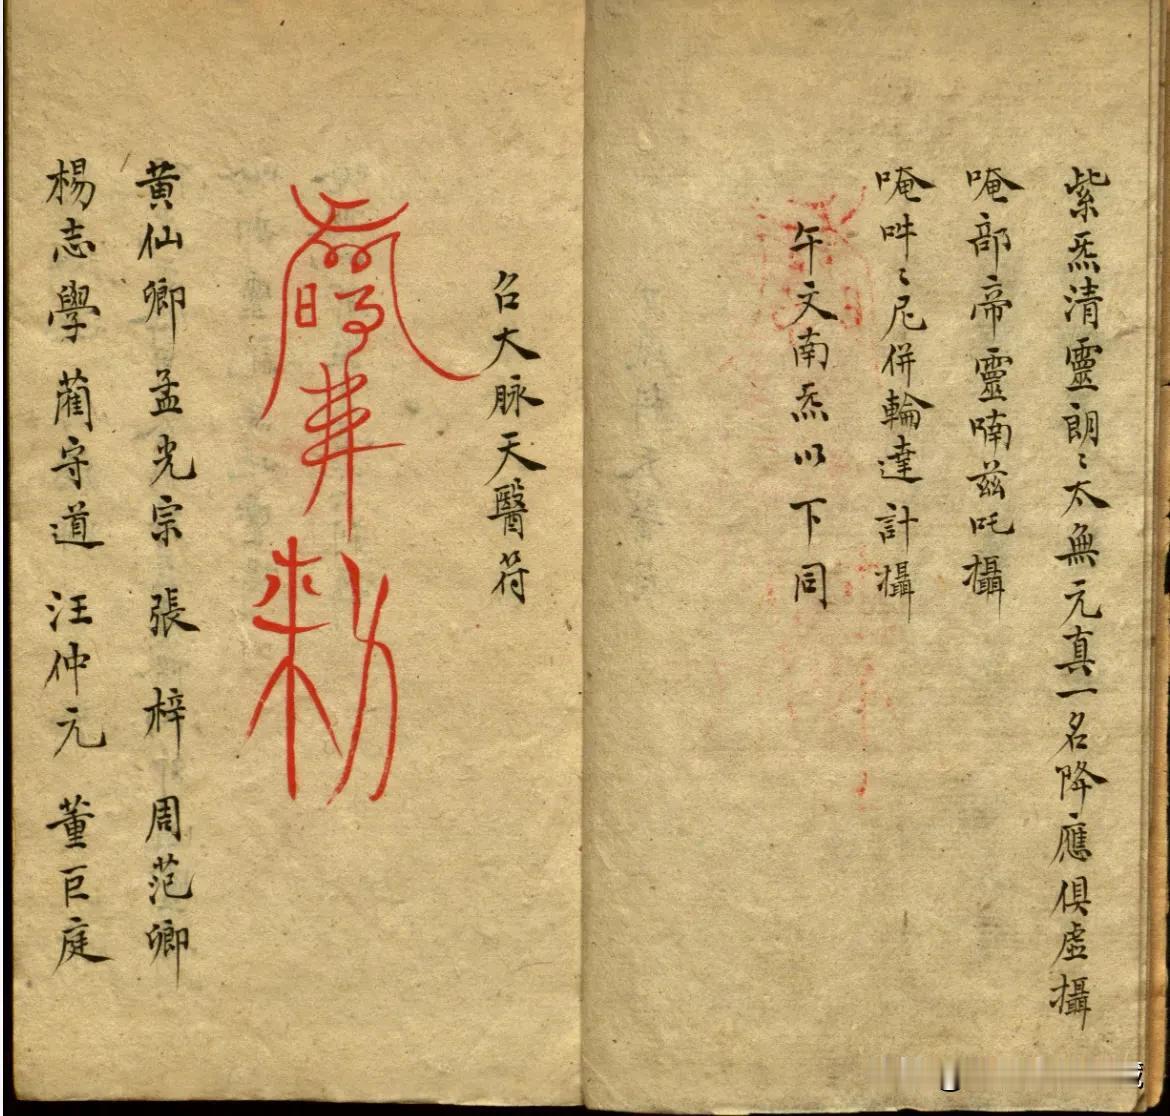 紫炁清靈朗〻太無元真一名降應俱虛攝
唵部帝靈喃茲吒攝
唵吽〻尼併輪達計攝
午文南炁以下同
召大脉天醫符
黄仙卿 孟光宗 張梓 周范卿
楊志學 藺守道 汪仲元 董巨庭